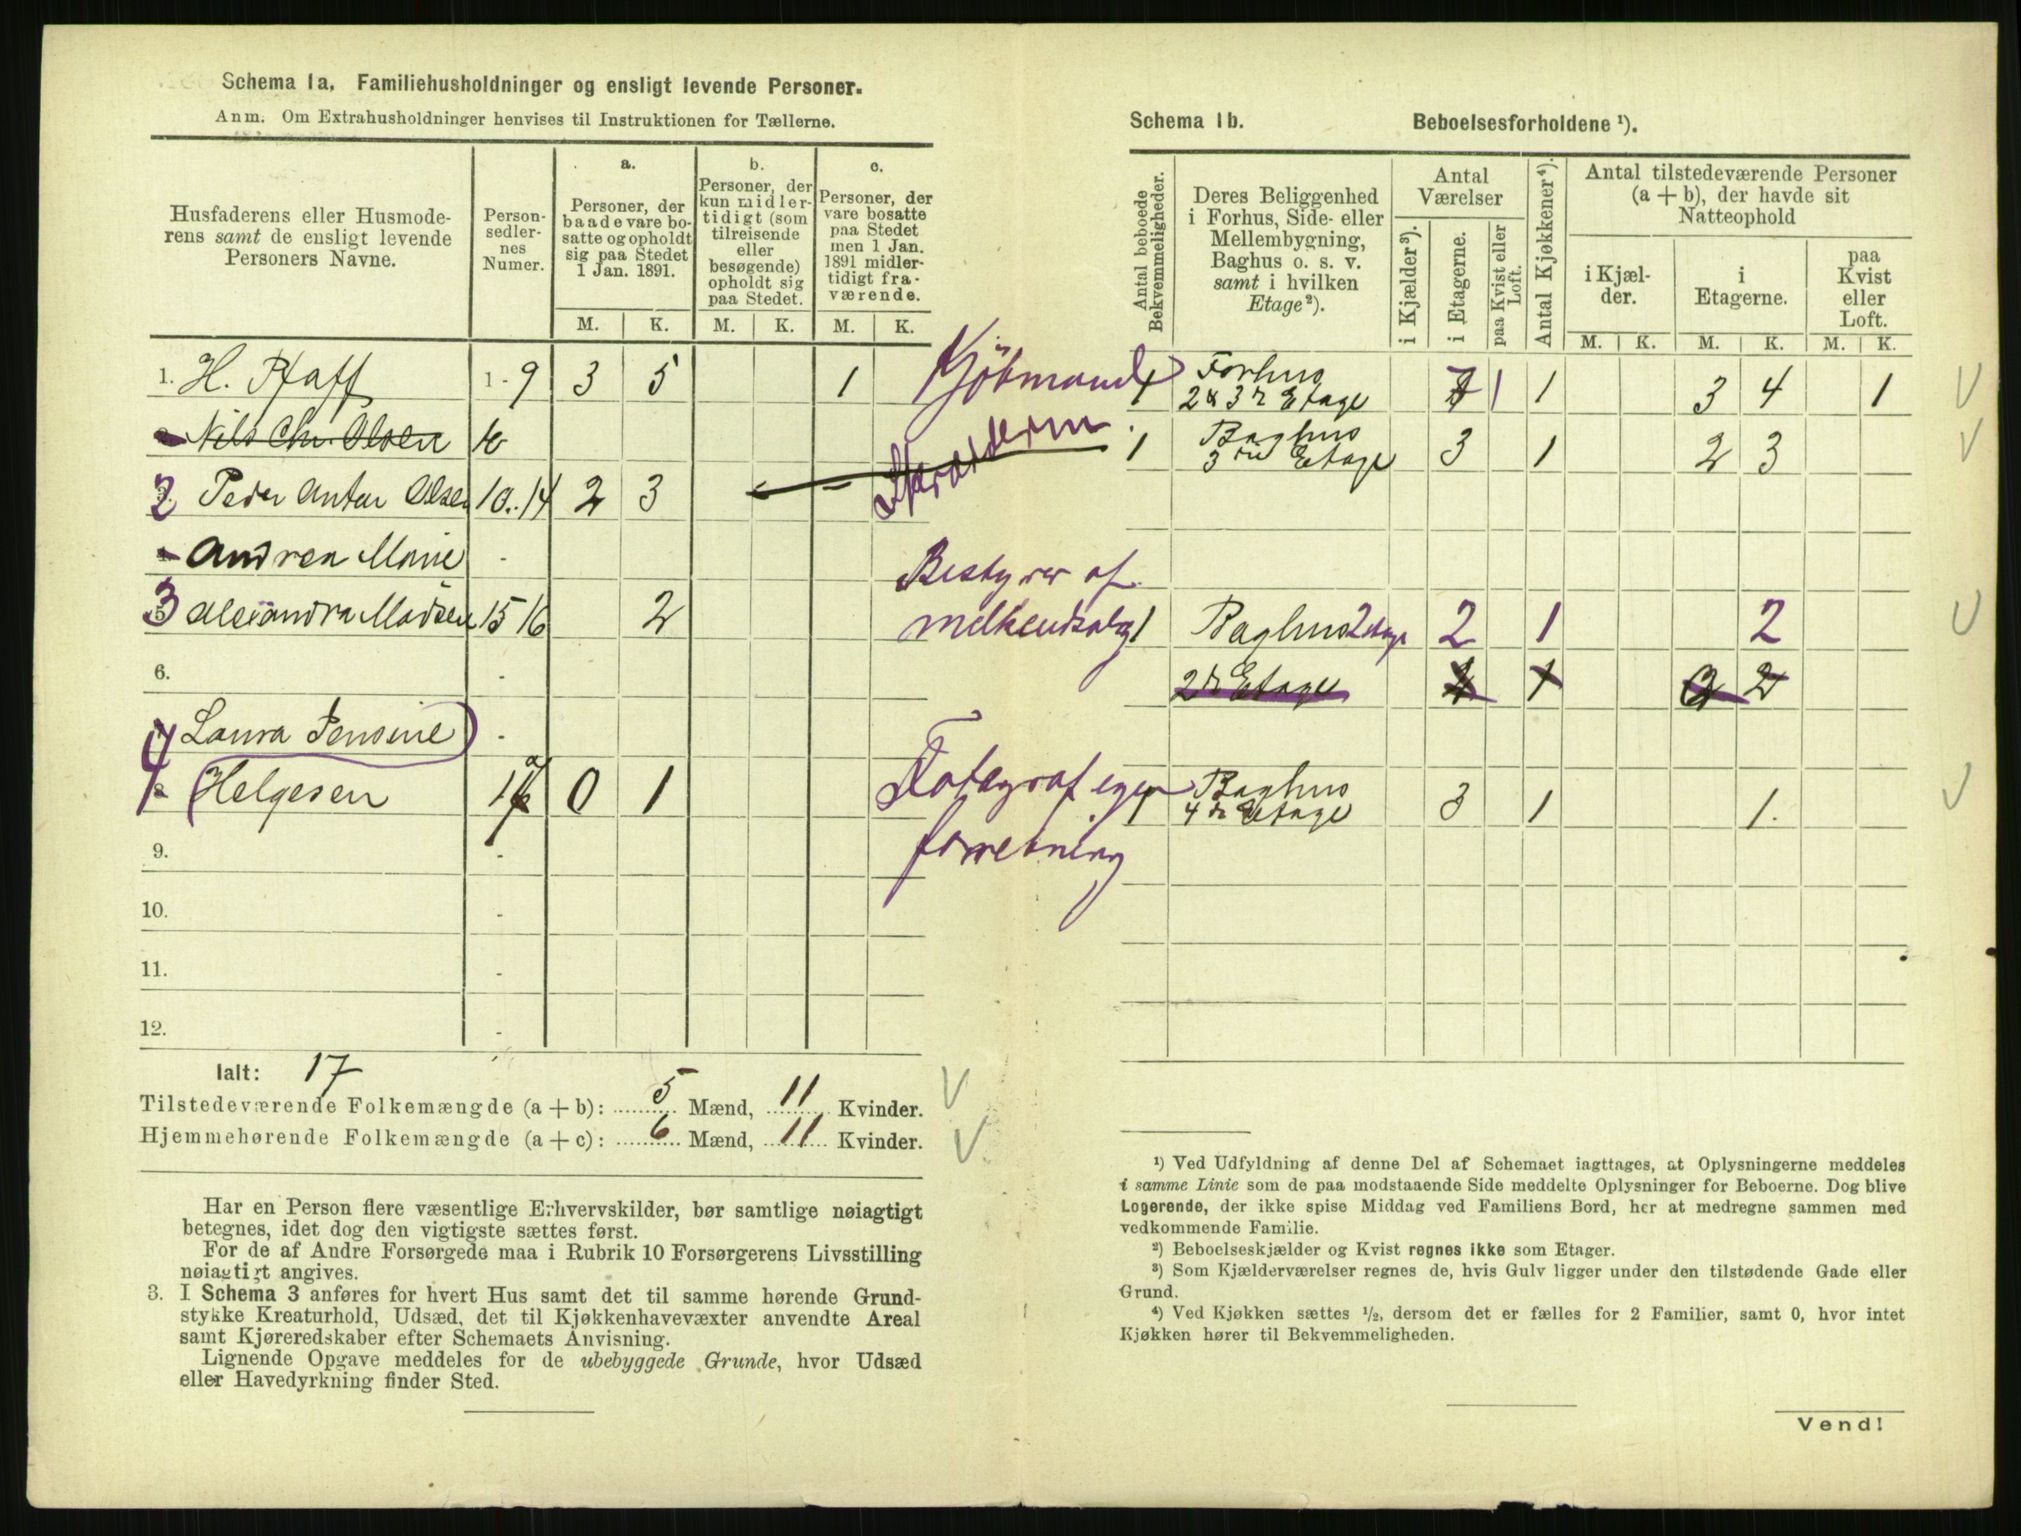 Schema 1a. Familiehusholdninger og ensligt levende Personer.
Anm. Om Extrahusholdninger henvises til Instruktionen for Tællerne.
Husfaderens eller Husmode-
rens samt de ensligt levende
Personers Navne.
Person-
sedler-
nes
Numer.
a.
Personer, der
baade vare bo-
satte og opholdt
sig paa Stedet
1 Jan. 1891.
b.
Personer, der
kun midler-
tidigt (som
tilreisende
eller
besøgende)
opholdt sig
paa Stedet.
c.
Personer, der
vare bosatte
paa Stedet
men 1 Jan.
1891 midler-
tidigt fra-
værende.
M. K. M. K. M. K.
1. H. Pfaff 1-9 3 5 1 Kjöbmand
Nils Chr. Olsen 10
2 Peder Anton Olsen 10.-14 2 3
Andrea Marie -
Bestyrer af
3 Alexandra Madsen 15 16 2 melkeudsalg
6. -
4 Laura Jensine -
Helgesen 17 0 1 Fotograf egen
forretning
9. -
10. -
11. -
12. -
Ialt: 17
Tilstedeværende Folkemængde (a + b): 5 Mænd, 11 Kvinder.
Hjemmehørende Folkemængde (a + c): 6 Mænd, 11 Kvinder.
Har en Person flere væsentlige Erhvervskilder, bør samtlige nøiagtigt
betegnes, idet dog den vigtigste sættes først.
For de af Andre Forsørgede maa i Rubrik 10 Forsørgerens Livsstilling
nøiagtigt angives.
3. I Schema 3 anføres for hvert Hus samt det til samme hørende Grund-
stykke Kreaturhold, Udsæd, det til Kjøkkenhavevæxter anvendte Areal
samt Kjøreredskaber efter Schemaets Anvisning.
Lignende Opgave meddeles for de ubebyggede Grunde, hvor Udsæd
eller Havedyrkning finder Sted.
Schema 1b. Beboelsesforholdene ¹).
Antal beboede
Bekvemmeligheder.
Deres Beliggenhed
i Forhus, Side- eller
Mellembygning,
Baghus o. s. v.
samt i hvilken
Etage ²).
Antal
Værelser
i Kjælder ³).
i Etagerne.
paa Kvist eller
Loft.
Antal Kjøkkener ⁴).
Antal tilstedeværende Personer
(a + b), der havde sit
Natteophold
i Kjæl-
der.
i
Etagerne.
paa
Kvist
eller
Loft.
M. K. M. K. M. K.
1 Forhus
2 & 3 Etage 7 1 1 3 4 1
1 Baghus
3 die Etage 3 1 2 3
1 Baghus 2 Etage 2 1 2
2 Etage 2
1 Baghus
4 de Etage 3 1 1.
¹) Ved Udfyldning af denne Del af Schemaet iagttages, at Oplysningerne meddeles
i samme Linie som de paa modstaaende Side meddelte Oplysninger for Beboerne. Dog blive
Logerende, der ikke spise Middag ved Familiens Bord, her at medregne sammen med
vedkommende Familie.
²) Beboelseskjælder og Kvist regnes ikke som Etager.
³) Som Kjælderværelser regnes de, hvis Gulv ligger under den tilstødende Gade eller
Grund.
⁴) Ved Kjøkken sættes ½, dersom det er fælles for 2 Familier, samt 0, hvor intet
Kjøkken hører til Bekvemmeligheden.
Vend!